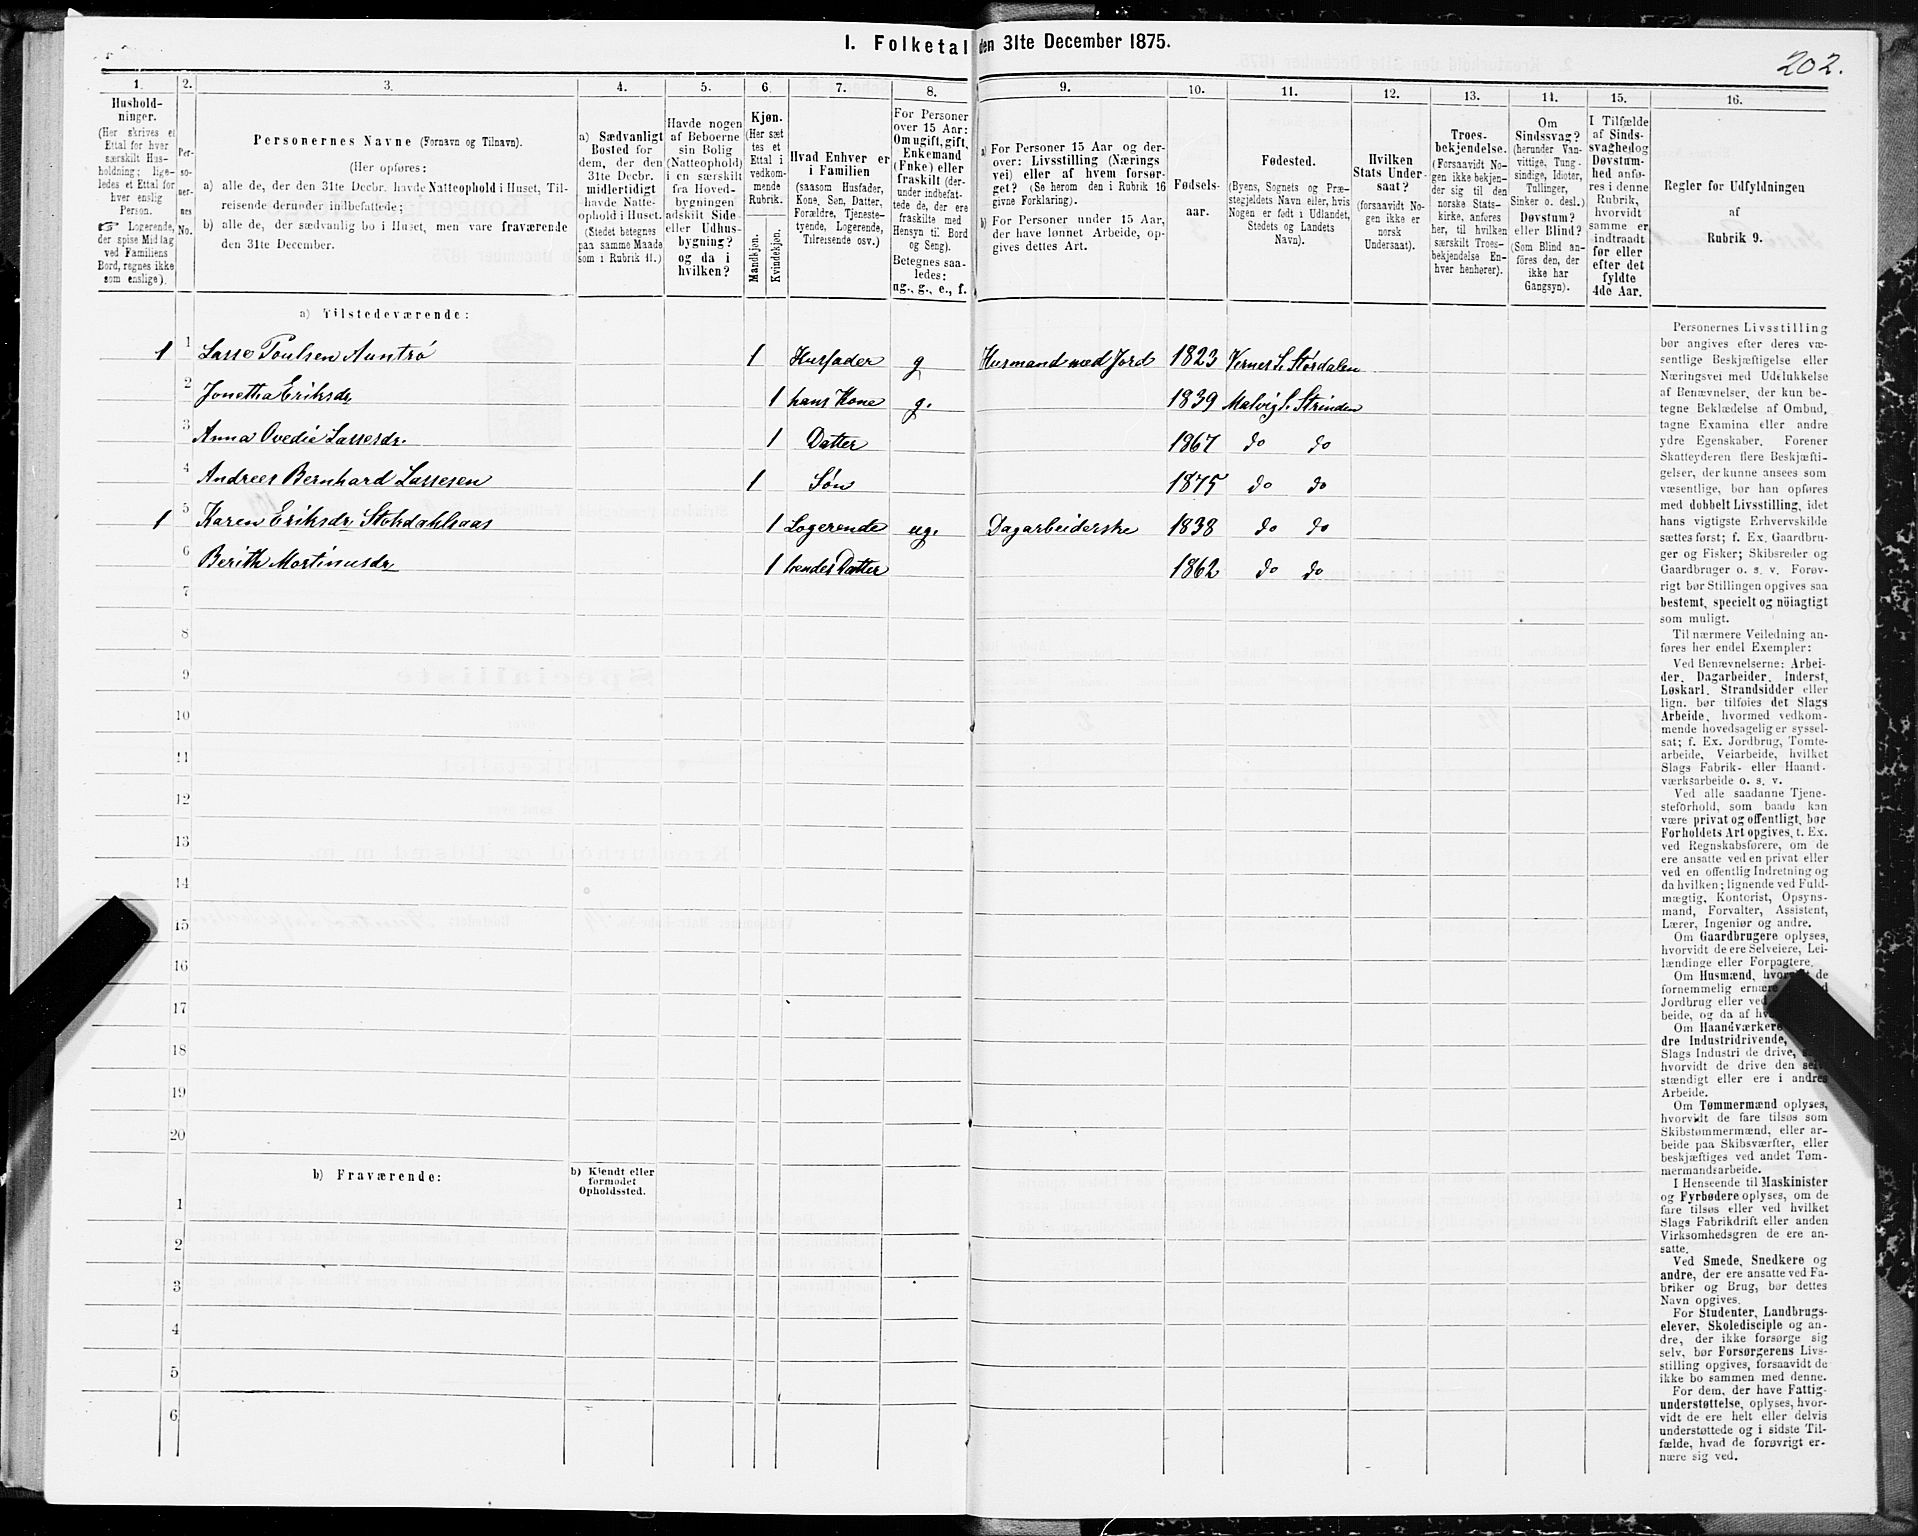 I. Folketal den 31te December 1875.
202.
1.
Hushold-
ninger.
(Her skrives et
Ettal for hver
særskilt Hus-
holdning; lige-
ledes et Ettal for
hver enslig
Person.
☞ Logerende,
der spise Middag
ved Familiens
Bord, regnes ikke
som enslige).
2.
Per-
so-
ner-
nes
No.
3.
Personernes Navne (Fornavn og Tilnavn).
(Her opføres:
a) alle de, der den 31te Decbr. havde Natteophold i Huset, Til-
reisende derunder indbefattede;
b) alle de, der sædvanlig bo i Huset, men vare fraværende
den 31te December.
4.
a) Sædvanligt
Bosted for
dem, der den
31te Decbr.
midlertidigt
havde Natte-
ophold i Huset.
(Stedet betegnes
paa samme Maade
som i Rubrik 11.)
5.
Havde nogen
af Beboerne
sin Bolig
(Natteophold)
i en særskilt
fra Hoved-
bygningen
adskilt Side-
eller Udhus-
bygning?
og da i
hvilken?
6.
Kjøn.
(Her sæt-
tes et
Ettal i
vedkom-
mende
Rubrik.
Mandkjøn.
Kvindekjøn.
7.
Hvad Enhver er
i Familien
(saasom Husfader,
Kone, Søn, Datter,
Forældre, Tjeneste-
tyende, Logerende,
Tilreisende osv.)
8.
For Personer
over 15 Aar:
Om ugift, gift,
Enkemand
(Enke) eller
fraskilt (der-
under indbefat-
tede de, der ere
fraskilte med
Hensyn til Bord
og Seng).
Betegnes saa-
ledes:
ug., g., e., f.
9.
a) For Personer 15 Aar og der-
over: Livsstilling (Nærings-
vei) eller af hvem forsør-
get? (Se herom den i Rubrik 16
givne Forklaring).
b) For Personer under 15 Aar,
der have lønnet Arbeide, op-
gives dettes Art.
10.
Fødsels-
aar.
11.
Fødested.
(Byens, Sognets og Præ-
stegjeldets Navn eller, hvis
Nogen er født i Udlandet,
Stedets og Landets
Navn).
12.
Hvilken
Stats Under-
saat?
(forsaavidt No-
gen ikke er
norsk
Undersaat).
13.
Troes-
bekjendelse.
(Forsaavidt No-
gen ikke bekjen-
der sig til den
norske Stats-
kirke, anføres
her, til hvilken
særskilt Troes-
bekjendelse En-
hver henhører).
14.
Om
Sindssvag?
(herunder Van-
vittige, Tung-
sindige, Idioter,
Tullinger,
Sinker o. desl.)
Døvstum?
eller Blind?
(Som Blind an-
føres den, der
ikke har
Gangsyn).
15.
I Tilfælde
af Sinds-
svaghed og
Døvstum-
hed anfø-
res i denne
Rubrik,
hvorvidt
samme er
indtraadt
før eller
efter det
fyldte
4de Aar.
16.
Regler for Udfyldningen
af
Rubrik 9.
a) Tilstedeværende:
1 1 Lasse Poulsen Auntrø 1 Husfader g Husmand med Jord 1823 Vernes S. Størdalen
2 Jonetha Eriksdr 1 hans Kone g. 1839 Malvig S. Strinden
3 Anna Ovedie Lassesdr. 1 Datter 1867 do do
4 Andreas Bernhard Lassesen 1 Søn 1875 do do
1 5 Karen Eriksdr Stohdahlsaas 1 Logerende ug. Dagarbeiderske 1838 do do
6 Berith Mortinusdr 1 hendes Datter 1862 do do
7
8
9
10
11
12
13
14
15
16
17
18
19
20
b) Fraværende:
b) Kjendt eller
formodet
Opholdssted.
1
2
3
4
5
6
Personernes Livsstilling
bør angives efter deres væ-
sentlige Beskjæftigelse eller
Næringsvei med Udelukkelse
af Benævnelser, der kun be-
tegne Beklædelse af Ombud,
tagne Examina eller andre
ydre Egenskaber. Forener
Skatteyderen flere Beskjæfti-
gelser, der kunne ansees som
væsentlige, bør han opføres
med dobbelt Livsstilling, idet
hans vigtigste Erhvervskilde
sættes først; f. Ex. Gaardbru-
ger og Fisker; Skibsreder og
Gaardbruger o. s. v. Forøv-
rigt bør Stillingen opgives saa
bestemt, specielt og nöiagtigt
som muligt.
Til nærmere Veiledning an-
føres her endel Exempler:
Ved Benævnelserne: Arbei-
der, Dagarbeider, Inderst,
Løskarl, Strandsidder eller
lign. bør tilføies det Slags
Arbeide, hvormed vedkom-
mende hovedsagelig er syssel-
sat; f. Ex. Jordbrug, Tomte-
arbeide, Veiarbeide, hvilket
Slags Fabrik- eller Haand-
værksarbeide o. s. v.
Ved alle saadanne Tjene-
steforhold, som baade kan
være privat og offentligt, bør
Forholdets Art opgives, t. Ex.
ved Regnskabsførere, om de
ere ansatte ved en privat eller
ved en offentlig Indretning og
da hvilken; lignende ved Fuld-
mægtig, Kontorist, Opsyns-
mand, Forvalter, Assistent,
Lærer, Ingeniør og andre.
Om Gaardbrugere oplyses,
hvorvidt de ere Selveiere, Lei-
lændinge eller Forpagtere.
Om Husmænd, de
fornemmelig ernære
Jordbrug eller ved
beide, og da af
Om Haandværkere
dre Industridrivende,
Slags Industri de drive,
hvorvidt de drive den selv-
stændigt eller ere i andres
Arbeide.
Om Tømmermænd oplyses,
hvorvidt de fare tilsøs som
Skibstømmermænd, eller ar-
beide paa Skibsværfter, eller
beskjæftiges ved andet Tøm-
mermandsarbeide.
I Henseende til Maskinister
og Fyrbødere oplyses, om de
fare tilsøs eller ved hvilket
Slags Fabrikdrift eller anden
Virksomhedsgren de ere an-
satte.
Ved Smede, Snedkere og
andre, der ere ansatte ved Fa-
briker og Brug, bør dettes
Navn opgives.
For Studenter, Landbrugs-
elever, Skoledisciple og an-
dre, der ikke forsørge sig
selv, bør Forsørgerens Livs-
stilling opgives, forsaavidt de
ikke bo sammen med denne.
For dem, der have Fattig-
understøttelse, oplyses, hvor-
vidt de ere helt eller delvis
understøttede og i sidste Til-
fælde, hvad de forøvrigt er-
nære sig ved.